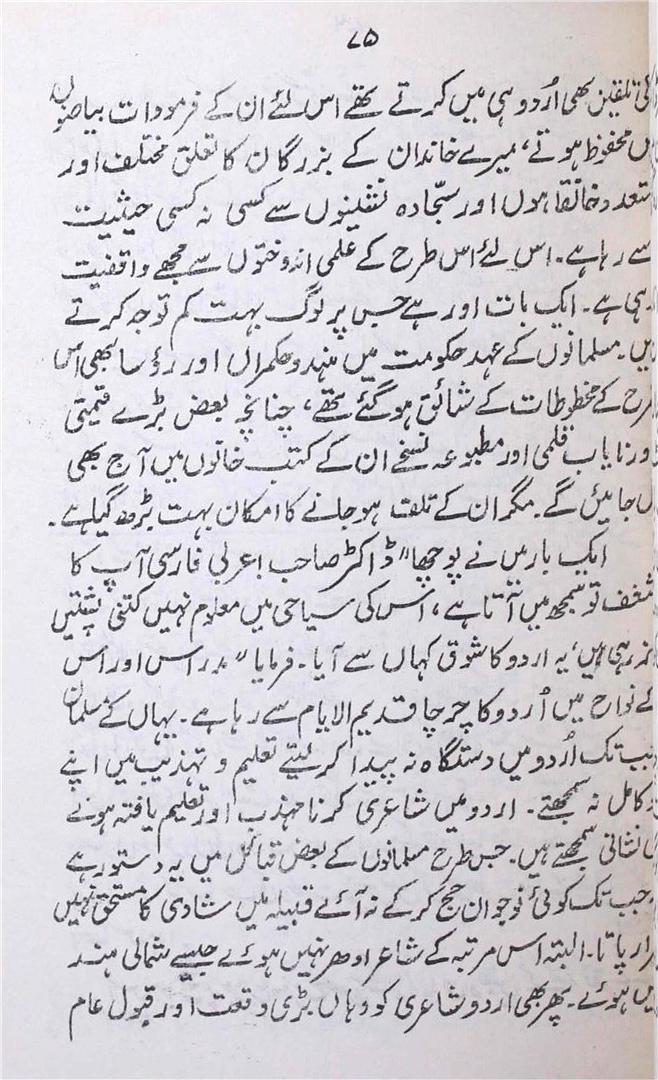 ۷۵
کی تلقین بھی اُردو ہی میں کرتے تھے اس لئے ان کے فرمودات بیاضوں
میں محفوظ ہوتے، میرے خاندان کے بزرگان کا تعلق مختلف اور
متعدد خانقاہوں اور سجّادہ نشینوں سے کسی نہ کسی حیثیت
سے رہا ہے۔ اس لئے اس طرح کے علمی اندوختوں سے مجھے واقفیت
رہی ہے۔ ایک بات اور ہے جس پر لوگ بہت کم توجہ کرتے
ہیں۔ مسلمانوں کے عہد حکومت میں ہندو حکمراں اور رؤسا بھی اس
طرح کے مخطوطات کے شائق ہو گئے تھے، چنانچہ بعض بڑے قیمتی
اور نایاب قلمی اور مطبوعہ نسخے ان کے کتب خانوں میں آج بھی
مل جائیں گے۔ مگر ان کے تلف ہو جانے کا امکان بہت بڑھ گیا ہے۔
ایک بار میں نے پوچھا "ڈاکٹر صاحب! عربی فارسی آپ کا
شغف تو سمجھ میں آتا ہے، اس کی سیاحی میں معلوم نہیں کتنی پشتیں
گذر رہی ہیں، یہ اردو کا شوق کہاں سے آیا۔ فرمایا " مدراس اور اس
کے نواح میں اُردو کا چرچا قدیم الایام سے رہا ہے۔ یہاں کے مسلمان
جب تک اُردو میں دستگاہ نہ پیدا کر لیتے تعلیم و تہذیب میں اپنے
کو کامل نہ سمجھتے۔ اردو میں شاعری کرنا مہذب اور تعلیم یافتہ ہونے
کی نشانی سمجھتے ہیں۔ جس طرح مسلمانوں کے بعض قبائل میں یہ دستور ہے
کہ جب تک کوئی نوجوان حج کر کے نہ آئے قبیلہ میں شادی کا مستحق نہیں
قرار پاتا۔ البتہ اس مرتبہ کے شاعر ادھر نہیں ہوئے جیسے شمالی ہند
میں ہوئے۔ پھر بھی اردو شاعری کو وہاں بڑی وقعت اور قبول عام